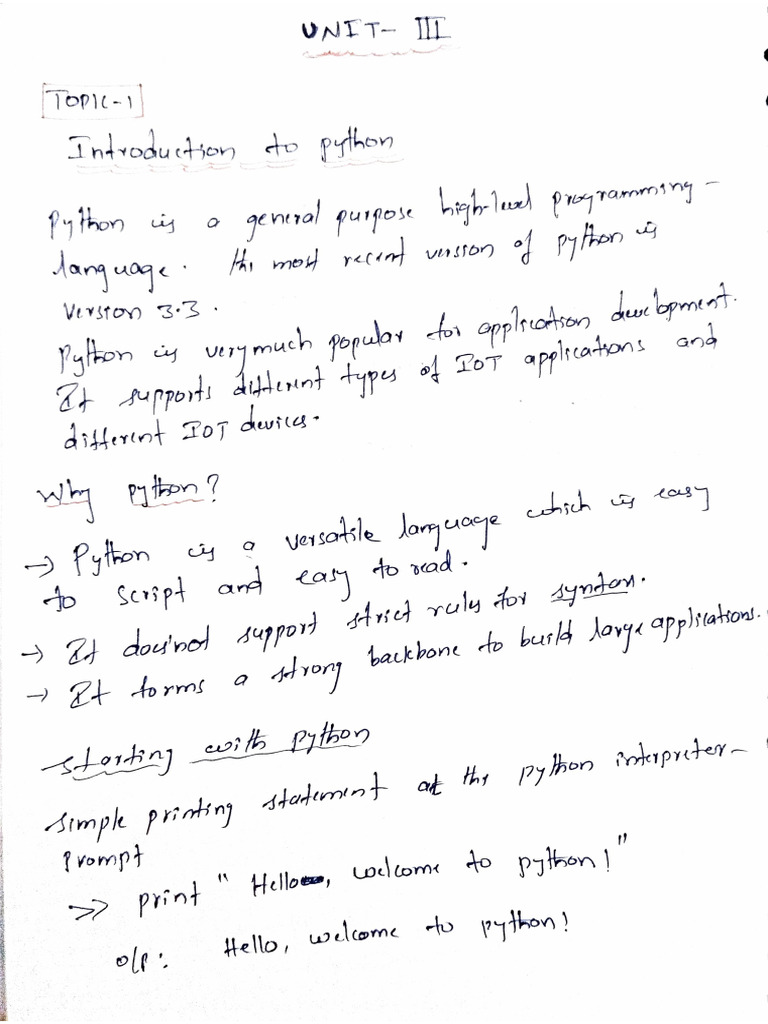 UNIT- III
TOPIC-1
Introduction to python
Python is a general purpose high-level programming-
language. the most recent version of python is
version 3.3.
Python is very much popular for application development.
It supports different types of IOT applications and
different IOT devices.
Why python?
→ Python is a versatile language which is easy
to script and easy to read.
→ It does'not support strict rules for syntax.
→ It forms a strong backbone to build large applications.
starting with python
simple printing statement at the python interpreter-
Prompt
>> print " Hello, welcome to python! "
o/p: Hello, welcome to python!